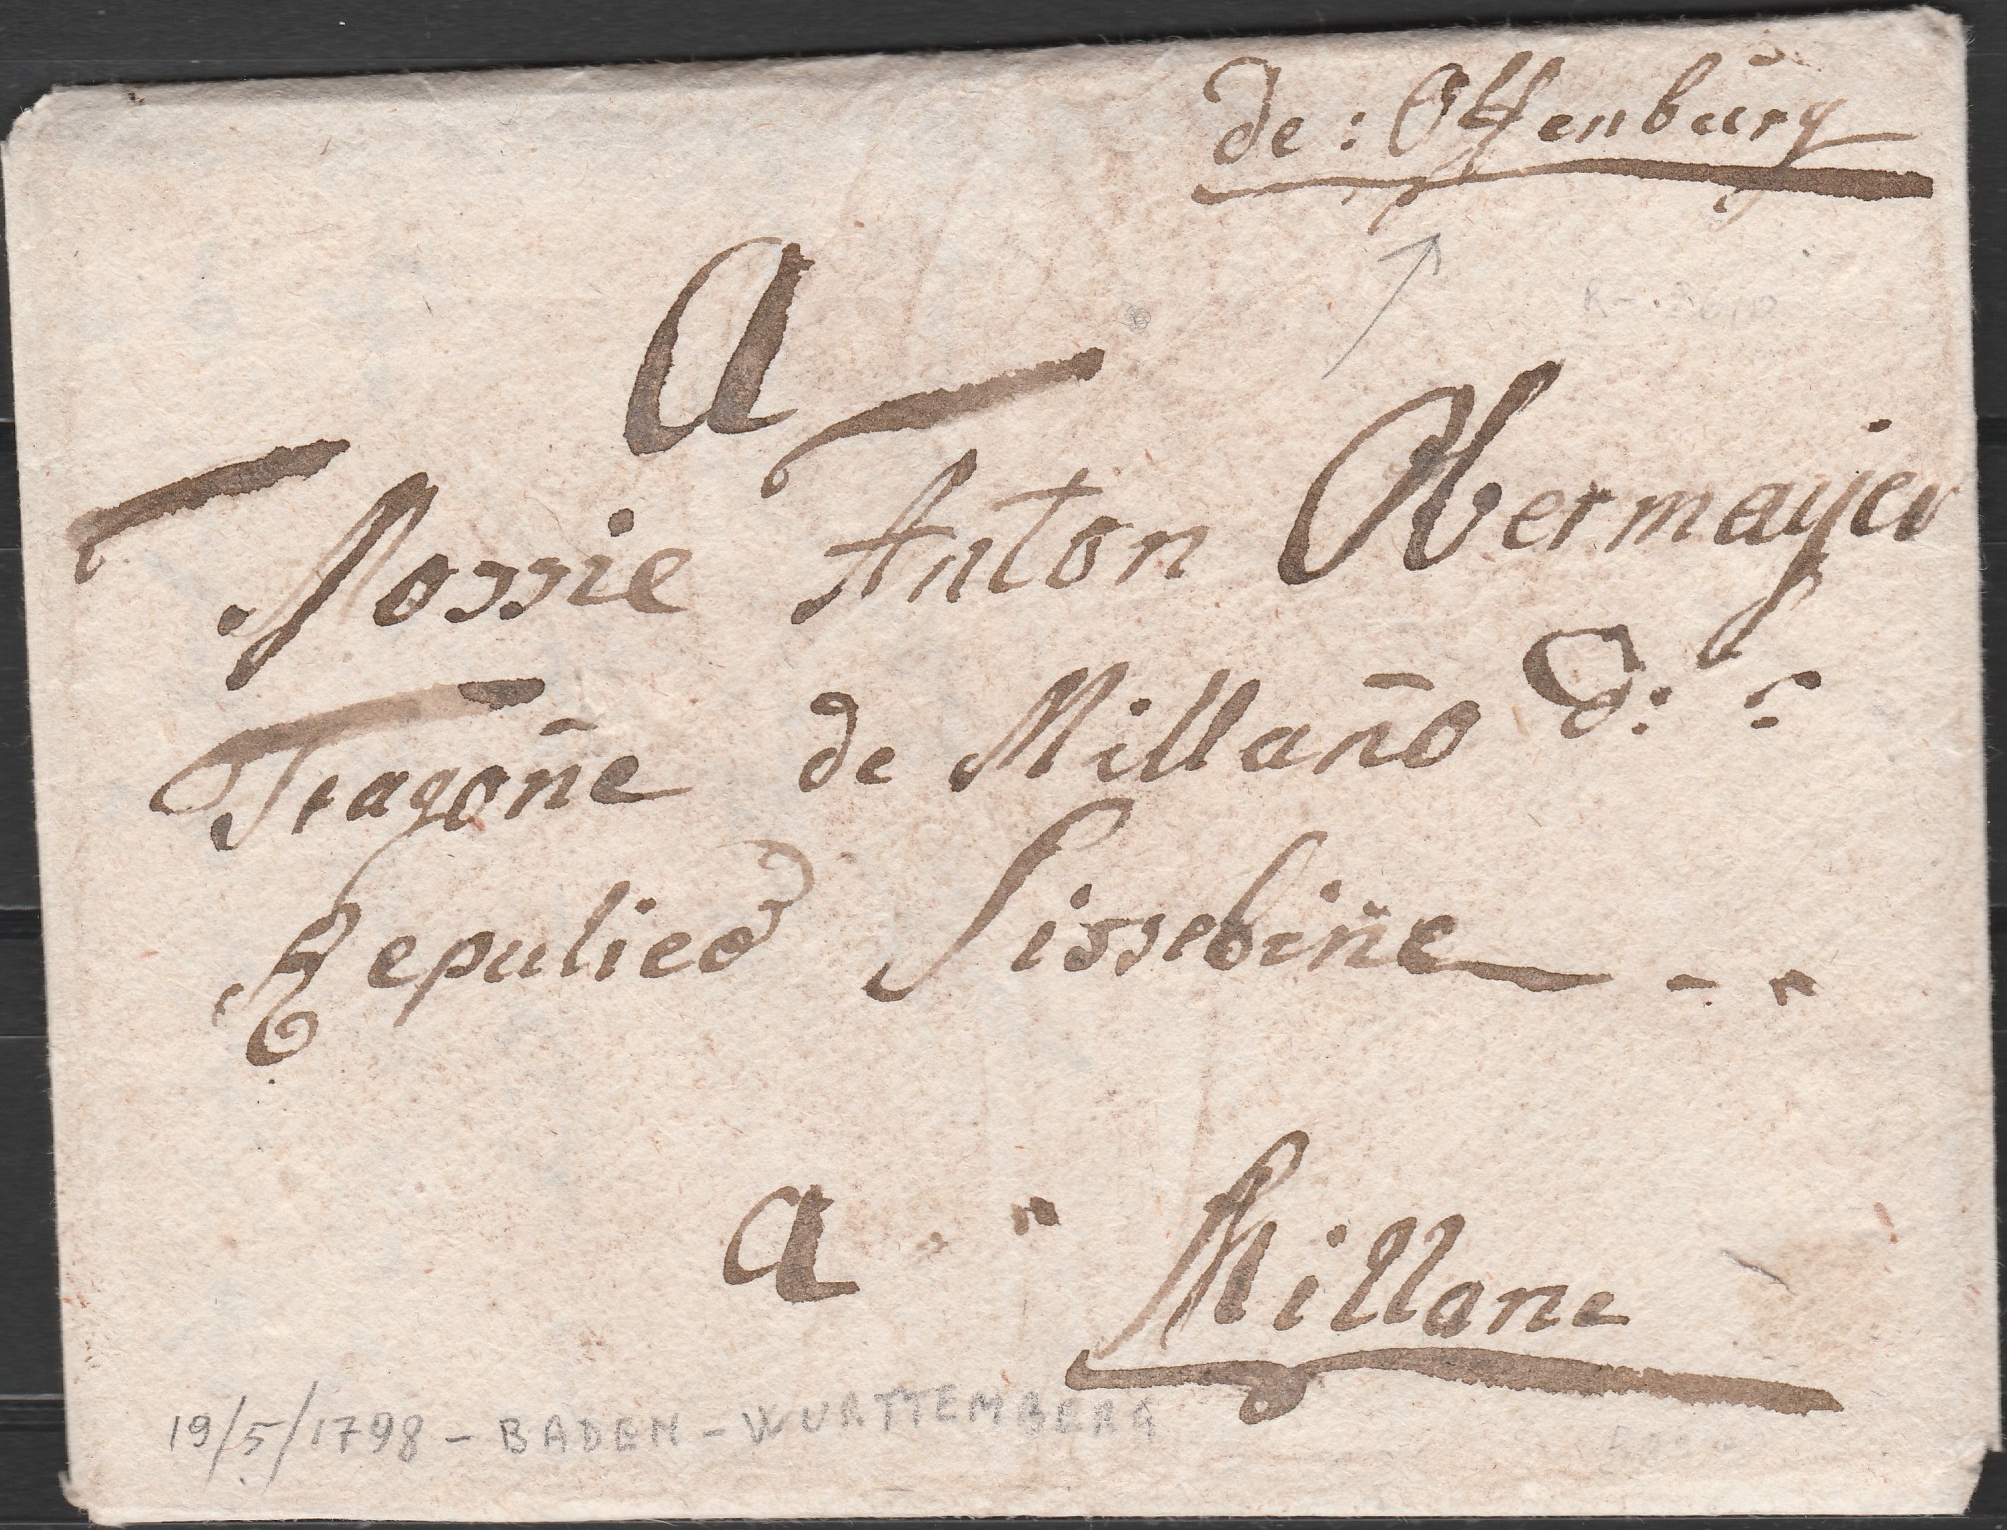 de: Offenburg
A
Mossie Anton Obermayer
Tragoñe de Millaño d:
Repulied Sissebiñe
a Millane
19/5/1798 - BADEN - WURTTEMBERG